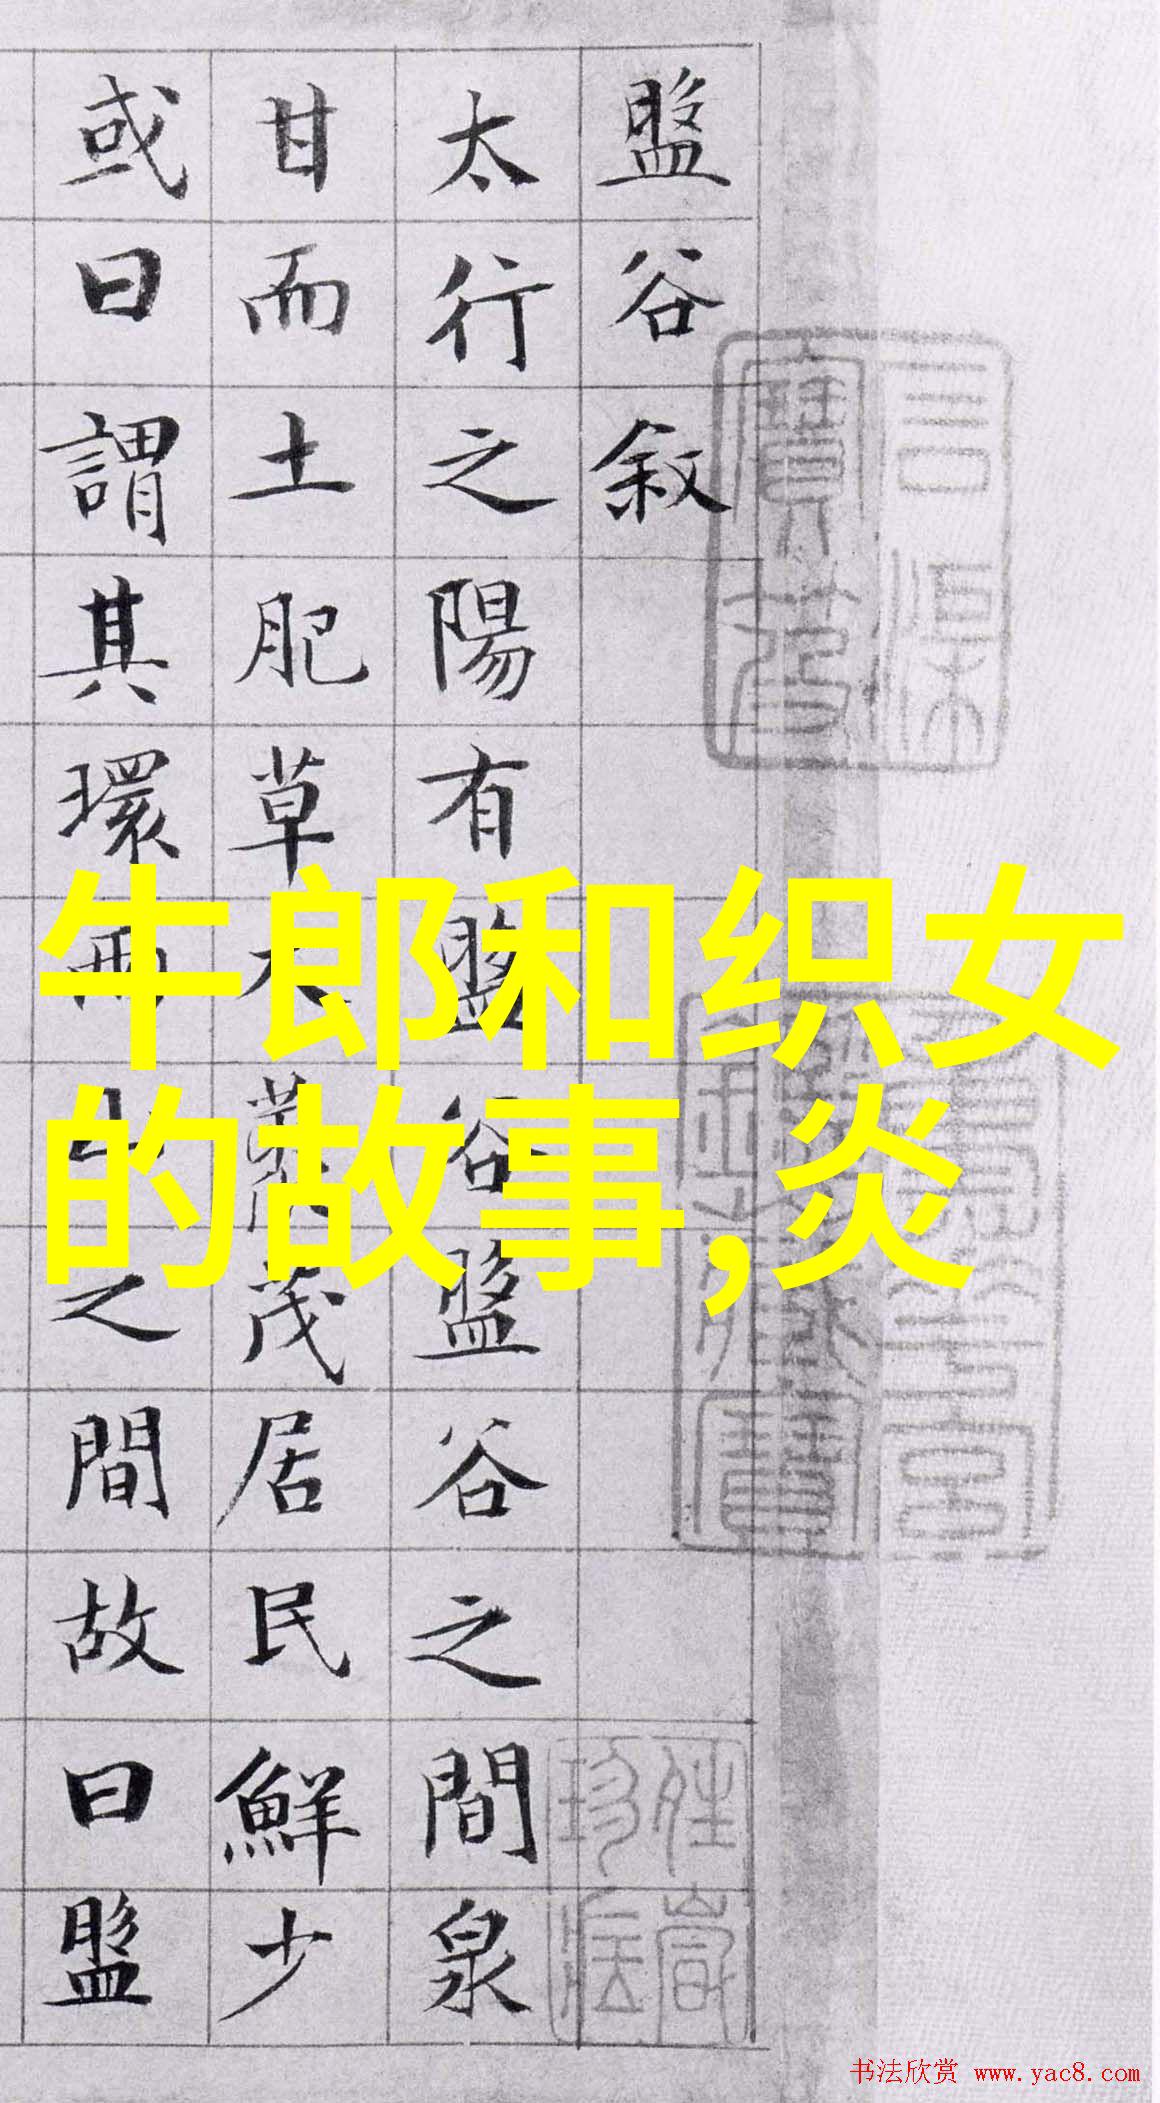 盤谷敘
太行之陽有盤谷盤谷之間泉
甘而土肥草木藂茂居民鮮少
或曰謂其環兩山之間故曰盤
牛郎和织女
的故事,炎
书法欣赏 www.yac8.com